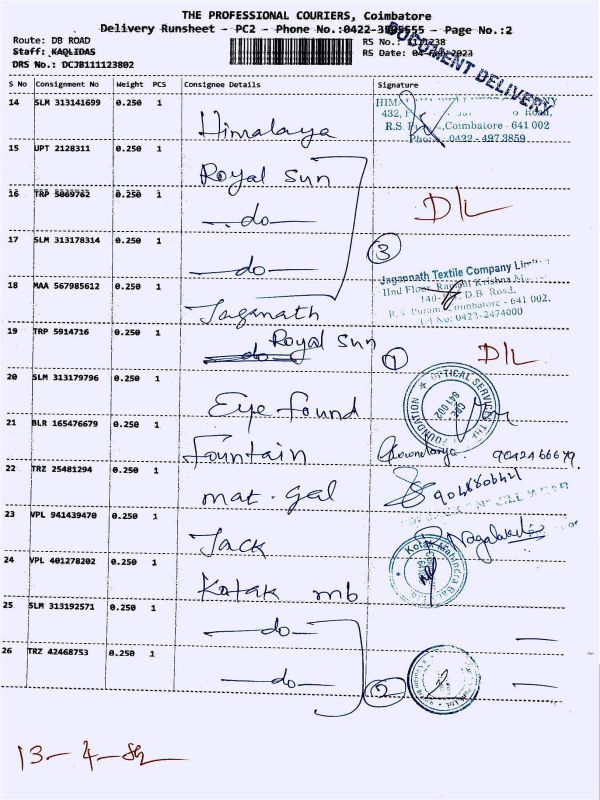 THE PROFESSIONAL COURIERS, Coimbatore
Delivery Runsheet - PC2 - Phone No.:0422- - Page No.:2
Route: DB ROAD
Staff: KAQLIDAS
DRS No.: DCJB111123802
RS No.:
RS Date: 2023
DOCUMENT DELIVERY
S No Consignment No Weight PCS Consignee Details Signature
14 SLM 313141699 0.250 1 Himalaya
432,
R.S. Coimbatore - 641 002
Phone: 0422 - 497 3859
15 UPT 2128311 0.250 1 Royal Sun
16 TRP 5069762 0.250 1 - do - D/L
17 SLM 313178314 0.250 1 - do - 3
18 MAA 567985612 0.250 1 Jaganath
Jagannath Textile Company
IInd Floor, Krishna
140- D.B. Road,
R.S. Puram, Coimbatore - 641 002.
No: 0422-2474000
19 TRP 5914716 0.250 1 do Royal Sun 1 D/L
20 SLM 313179796 0.250 1 Eye found
OPTICAL SERVICE THE FOUNDATION
CBE 641 002
21 BLR 165476679 0.250 1 Fountain
22 TRZ 25481294 0.250 1 mat. gal
23 VPL 941439470 0.250 1 Jack
24 VPL 401278202 0.250 1 Kotak mb
Kotak Mahindra
25 SLM 313192571 0.250 1 - do -
26 TRZ 42468753 0.250 1 - do - 2
13 - 4 -